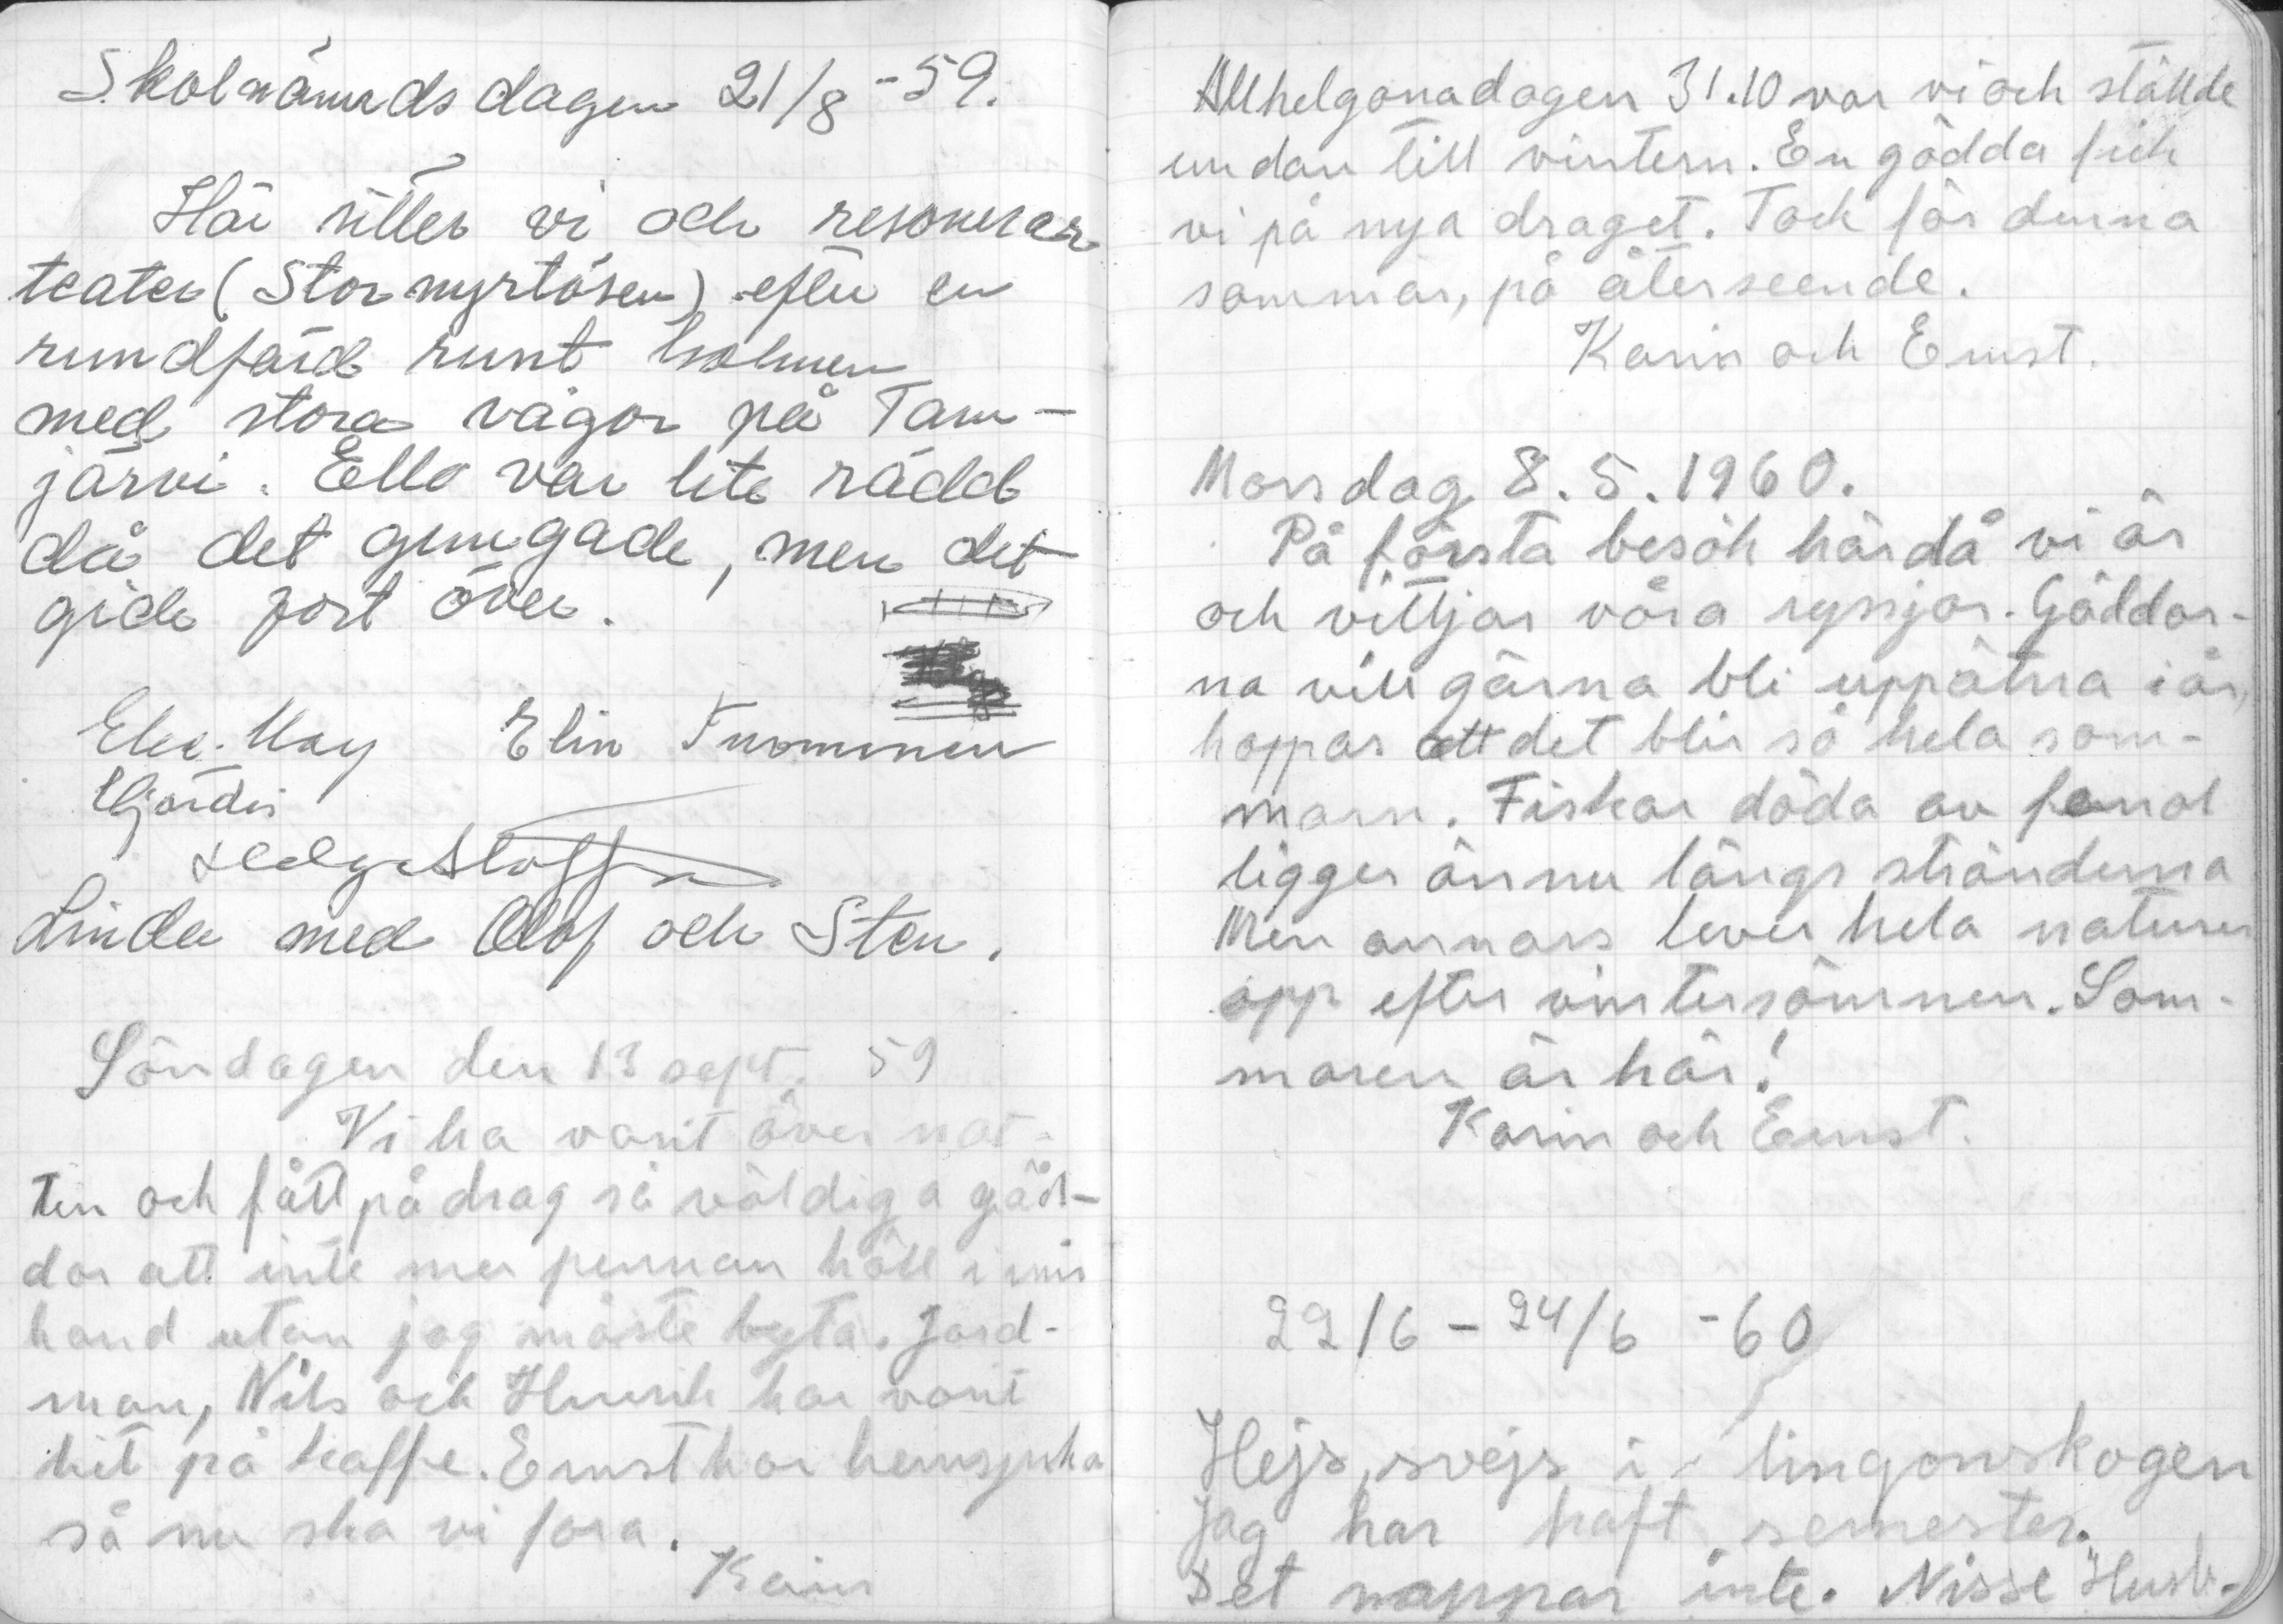 Skolnämndsdagen 21/8 -59.
Här sitter vi och resonerar
teater (Stormyrtösen) efter en
rundfärd runt holmen
med stora vågor på Tam-
järvi. Ella var lite rädd
då det gungade, men det
gick fort över.
Else-May Elin Tuominen
Hjördis
Helge Staffans
Linda med Olof och Sten.
Söndagen den 13 sept. 59
Vi ha varit över nat-
ten och fått på drag så väldiga gäd-
dor att inte mer pennan höll i min
hand utan jag måste byta. Jord-
man, Nils och Henrik har varit
hit på kaffe. Ernst har hemsjuka
så nu ska vi fara.
Karin
Allhelgonadagen 31.10 var vi och ställde
undan till vintern. En gädda fick
vi på nya draget. Tack för denna
sommar, på återseende.
Karin och Ernst.
Morsdag 8.5.1960.
På första besök här då vi är
och vittjar våra ryssjor. Gäddor-
na vill gärna bli uppätna i år,
hoppas att det blir så hela som-
marn. Fiskar döda av fenol
ligger ännu längs stränderna
Men annars lever hela naturen
opp efter vintersömnen. Som-
maren är här!
Karin och Ernst.
22/6 - 24/6 -60
Hejs, svejs i lingonskogen
Jag har haft semester.
Det nappar inte. Nisse Husb.